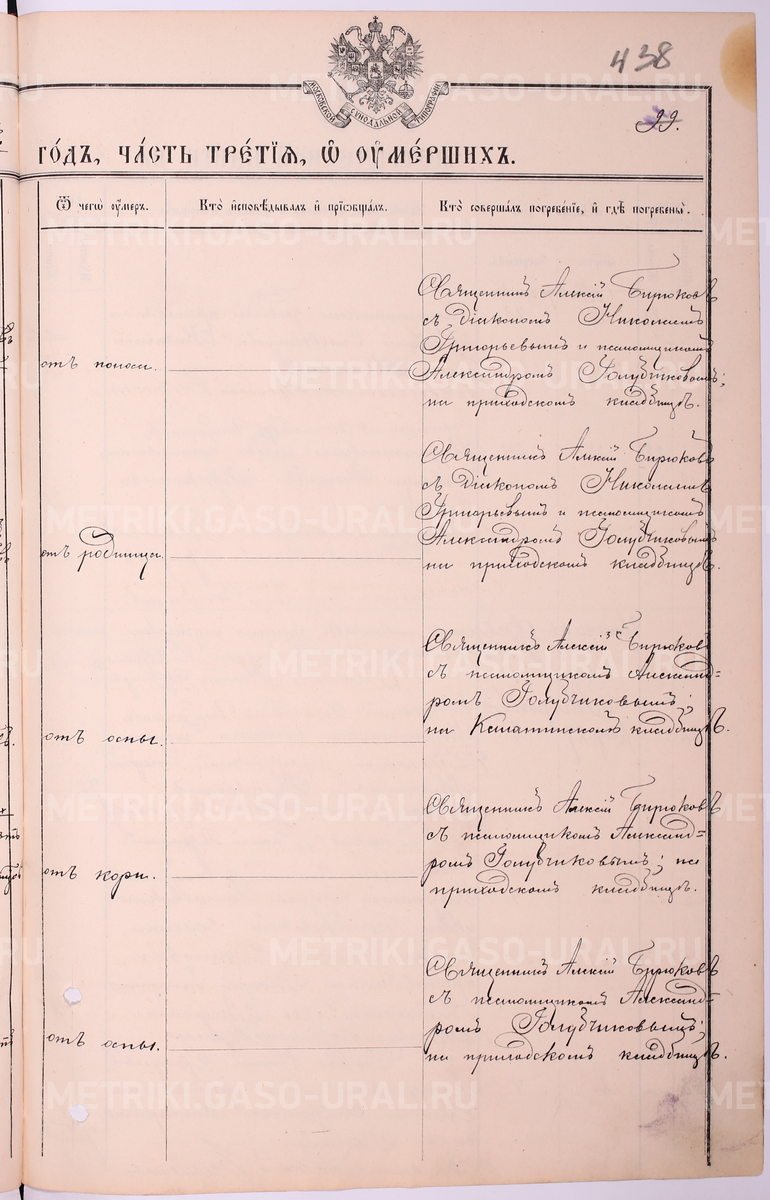 438
99.
МОСКОВСКОЙ СѴНОДАЛЬНОЙ ТИПОГРАФІИ
го́дъ, ча́сть тре́тїѧ, ѡ҆ ᲂу҆ме́ршихъ.
Ѿ чегѡ̀ ᲂу҆́меръ.
Кто̀ и҆сповѣ́дывалъ и҆ прїѡбща́лъ.
Кто̀ соверша́лъ погребе́нїе, и҆ гдѣ̀ погребены̀.
отъ поноса.
Священникъ Алексій Бирюковъ
съ діакономъ Николаемъ
Григорьевымъ и псаломщикомъ
Александромъ Голубчиковымъ;
на приходскомъ кладбищѣ.
отъ родимца.
Священникъ Алексій Бирюковъ
съ діакономъ Николаемъ
Григорьевымъ и псаломщикомъ
Александромъ Голубчиковымъ
на приходскомъ кладбищѣ.
отъ оспы.
Священникъ Алексій Бирюковъ
съ псаломщикомъ Александ=
ромъ Голубчиковымъ;
на кладбищѣ.
отъ кори.
Священникъ Алексій Бирюковъ
съ псаломщикомъ Александ=
ромъ Голубчиковымъ; на
приходскомъ кладбищѣ.
отъ оспы.
Священникъ Алексій Бирюковъ
съ псаломщикомъ Александ=
ромъ Голубчиковымъ;
на приходскомъ кладбищѣ.
METRIKI.GASO-URAL.RU